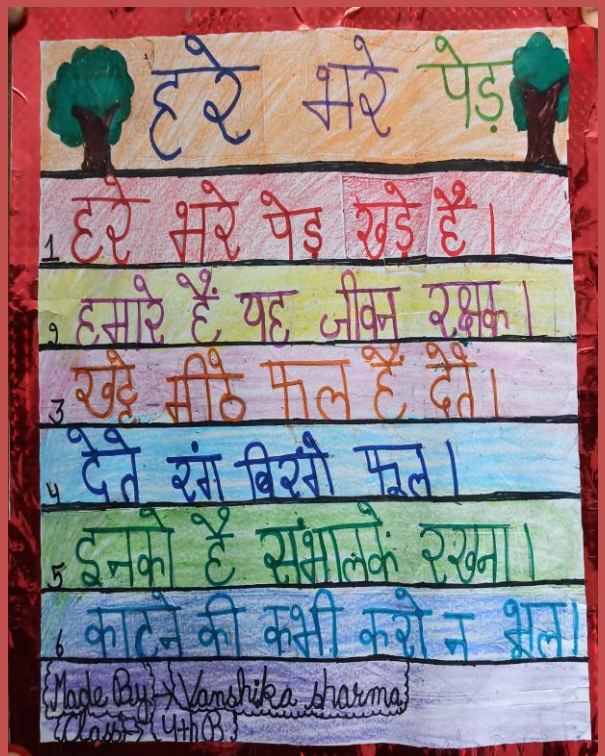 हरे भरे पेड़
1 हरे भरे पेड़ खड़े हैं।
2 हमारे हैं यह जीवन रक्षक।
3 खट्टे मीठे फल हैं देते।
4 देते रंग बिरंगे फूल।
5 इनको है संभालकें रखना।
6 काटने की कभी करो न भूल।
{Made By}→{Vanshika sharma}
{Class→{4th B}